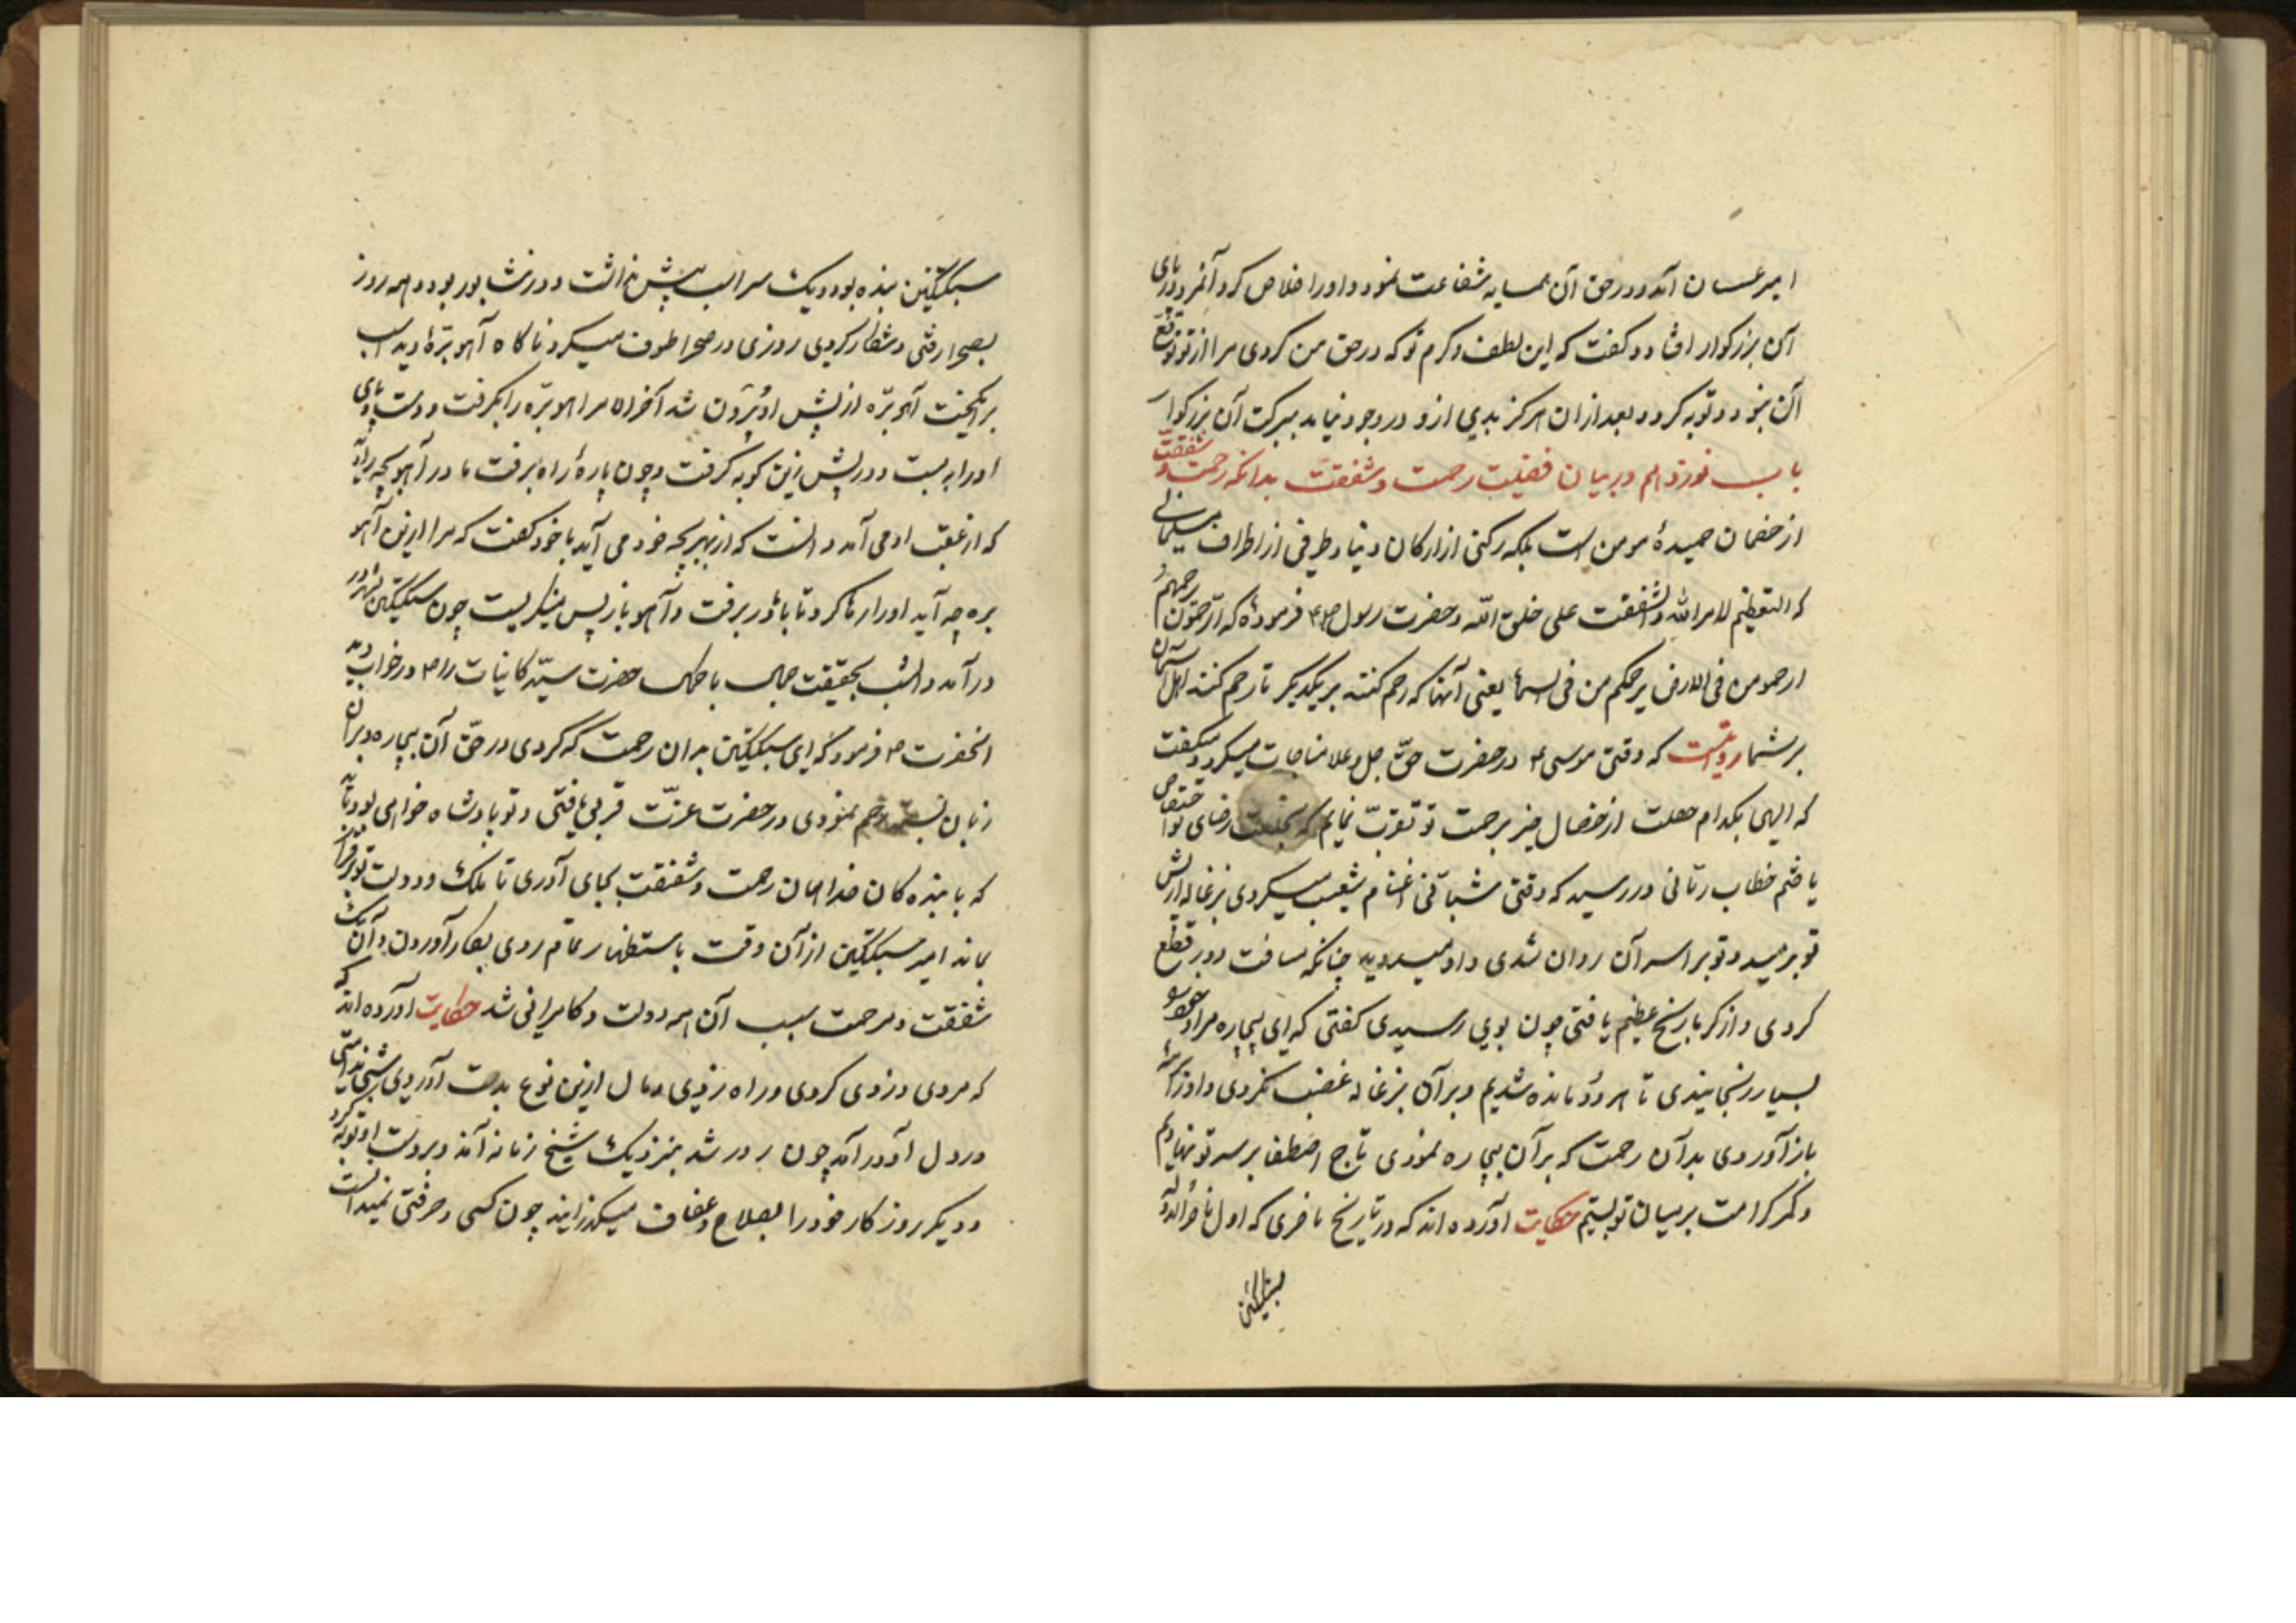 امیر عسان آمد و در حق آن همسایه شفاعت نمود و او را خلاص کرد آنمرد در پای
آن بزرکوار افتاد و کفت که این لطف و کرم تو که در حق من کردی مرا از تو توقع
آن نبود و توبه کرد و بعد از ان هرکز بدی ازو در وجود نیامد ببرکت آن بزرکوار
باب نوزدهم در بیان فضیلت رحمت و شفقت بدانکه رحمت و شفقت
از خصال حمیدهٔ مومن است بلکه رکنی از ارکان و طرفی از اطراف مسلمانی
که التعظیم لامر الله و الشفقت علی خلق الله و حضرت رسول فرموده که الراحمون یرحمهم
ارحمو من فی الارض یرحمکم من فی السماء یعنی آنها که رحم کنند بر یکدیکر تا رحم کنند اهل آسمان
بر شما روایتست که وقتی موسی در حضرت حق جل و علا مناجات میکرد و میکفت
که الهی بکدام خصلت از خصال خیر برحمت تو تقرب نمایم که رضای تو اختصاص
یافتم خطاب ربانی در رسید که وقتی شبانی اغنام شعیب میکردی بزغاله از پیش
تو برمید و تو بر اسر آن روان شدی و او میدوید چنانکه مسافت دور قطع
کردی و از کرما رنج عظیم یافتی چون بوی رسیدی کفتی که ای بیچاره مرا و خود را
بسیار رنجانیدی تا هر دو مانده شدیم و بر آن بزغاله غضب نکردی و او را
باز آوردی بدآن رحمت که بر آن بیچاره نمودی تاج اصطفا بر سر تو نهادیم
و کمر کرامت بر میان تو بستیم حکایت آورده اند که در تاریخ ناصری که اول ناصرالدوله
سبکتکین
سبکتکین بنده بود و یک سر اسب بیش نداشت و در نشابور بود و همه روز
بصحرا رفتی و شکار کردی روزی در صحرا طوف میکرد ناکاه آهو برهٔ دید اسب
برانکیخت آهو بره از پیش او بیرون شد آخر الامر اهو بره را بکرفت و دست و پای
او را ببست و در پیش زین کوبه کرفت و چون پارهٔ راه برفت مادر آهو بچه را دید
که از عقب او می آمد دانست که از بهر بچه خود می آید با خود کفت که مرا ازین آهو
بره چه آید او را رها کرد تا با مادر برفت و آهو باز پس مینکریست چون سبکتکین بشهر
در آمد و انشب بحقیقت جمال با کمال حضرت سید کاینات را در خواب دید
انحضرت فرمود که ای سبکتکین بدان رحمت که کردی در حق آن بیچاره و بر آن
زبان بسته رحم نمودی در حضرت عزت قربی یافتی و تو پادشاه خواهی بود باید
که با بنده کان خدا همان رحمت و شفقت بجای آوری تا ملک و دولت تو برقرار
بماند امیر سبکتکین از آن وقت باستظهار تمام روی بکار آورد و آن یک
شفقت و مرحمت سبب آن همه دولت و کامرانی شد حکایت آورده اند که
که مردی دزدی کردی و راه زدی و مال ازین نوع بدست آوردی شبی
در دل او در آمد چون روز شد بنزدیک شیخ زمانه آمد و بر دست او توبه کرد
و دیکر روزکار خود را بصلاح و عفاف میکذرانید چون کسی و حرفتی نمیدانست